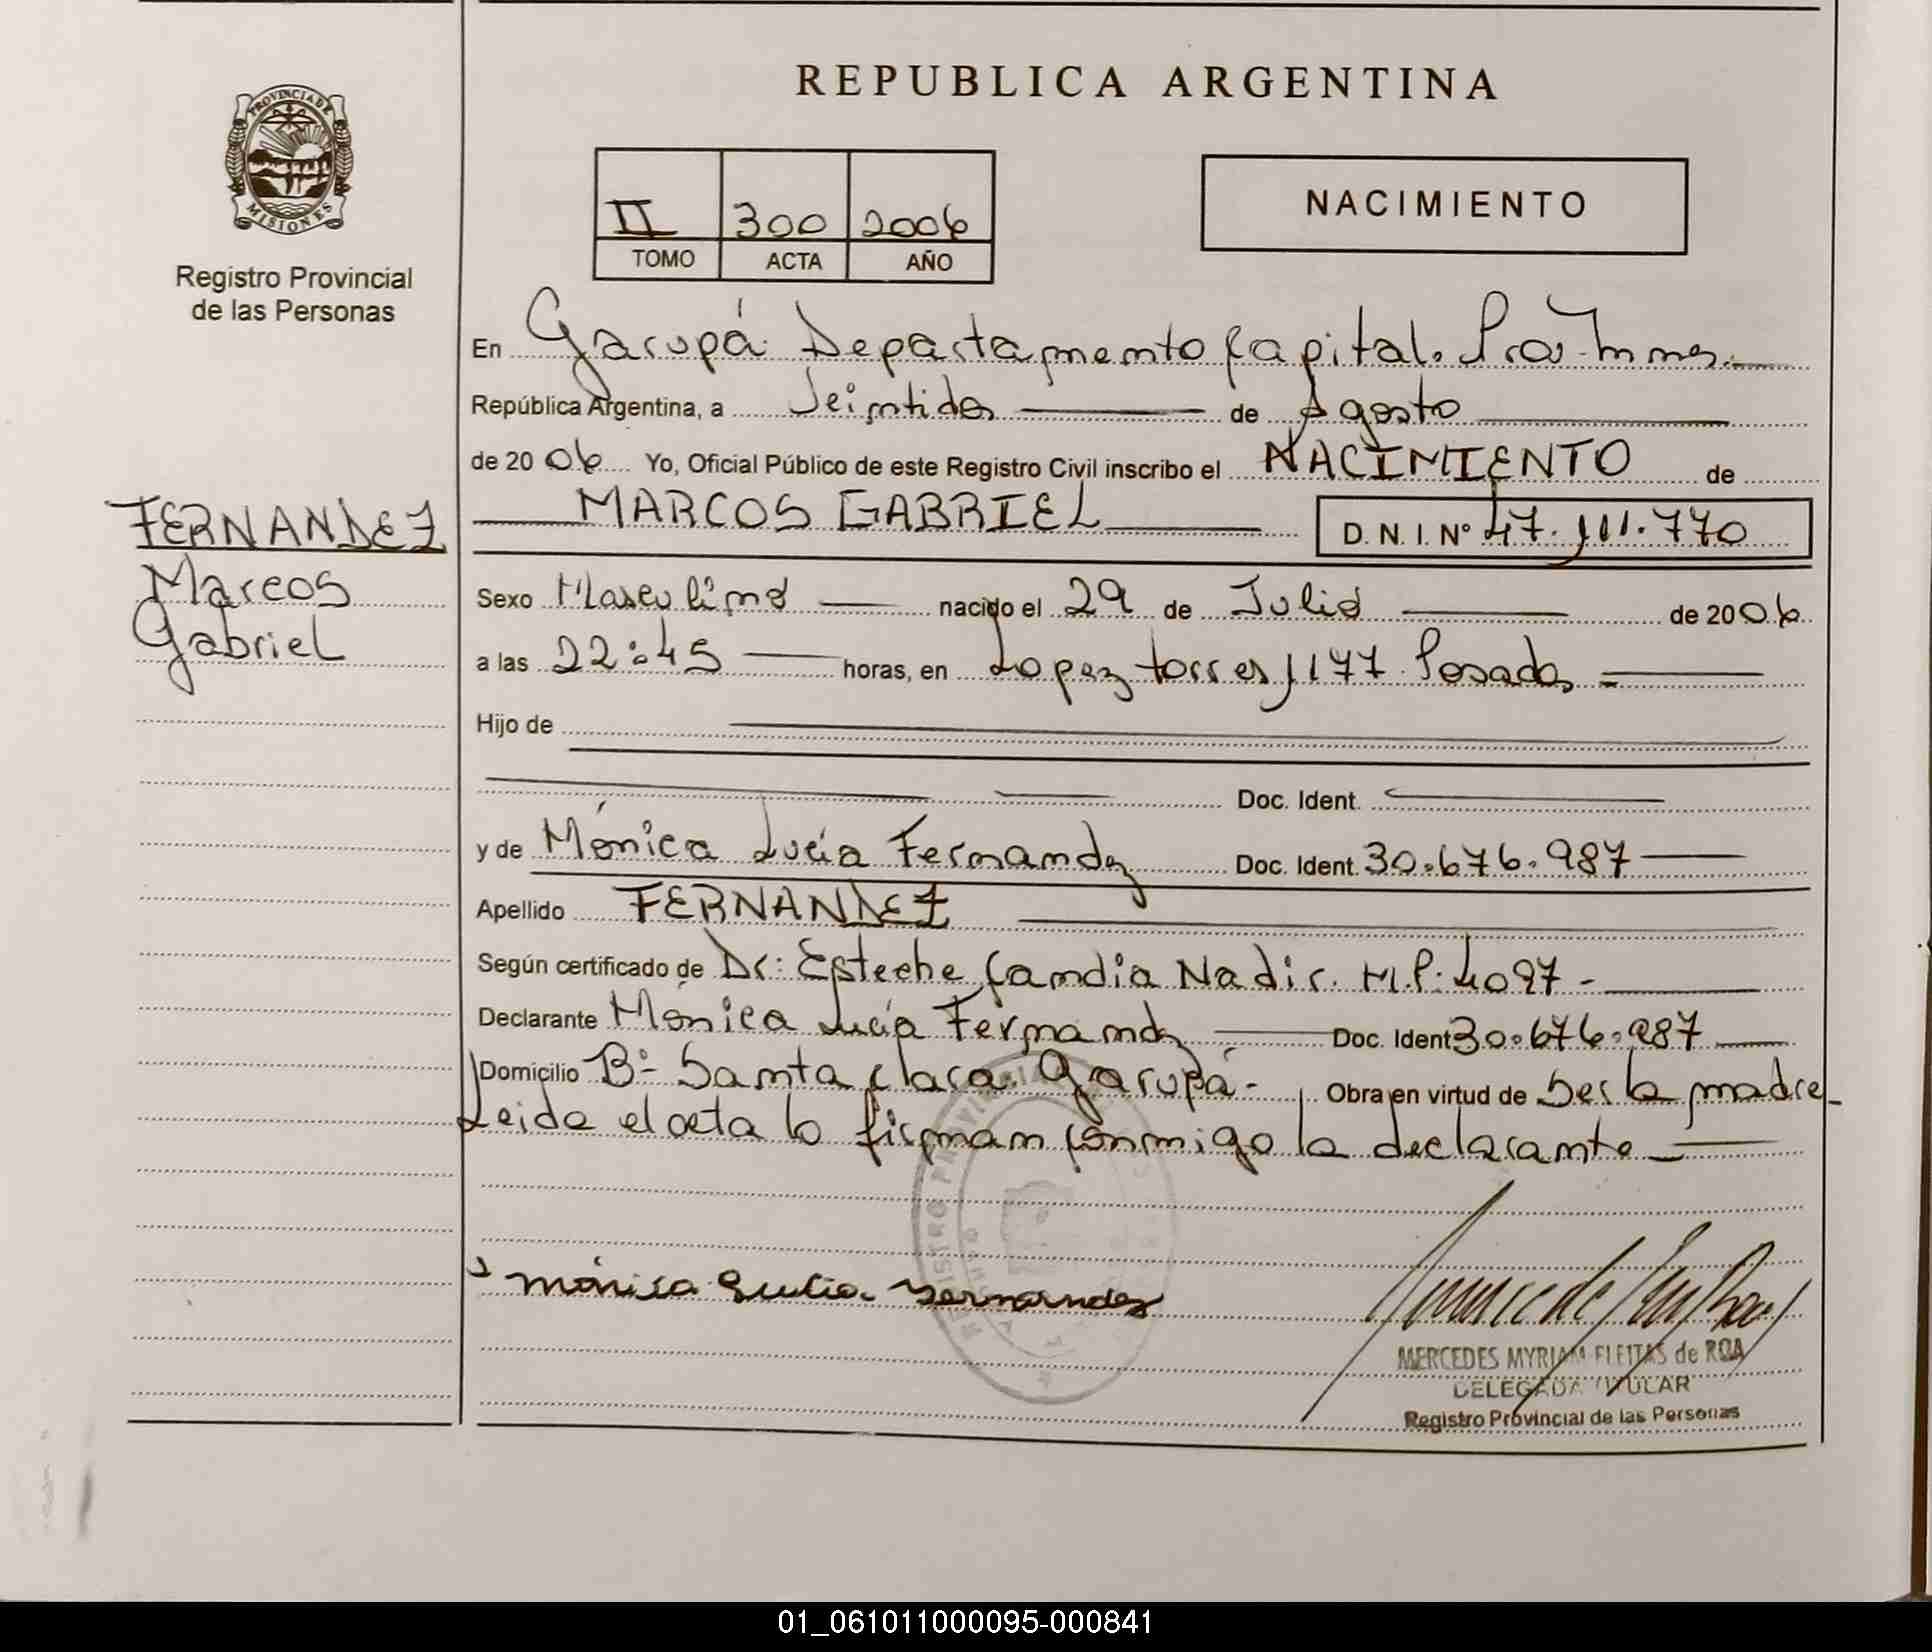 REPUBLICA ARGENTINA
PROVINCIA DE
MISIONES
Registro Provincial
de las Personas
II 300 2006
TOMO ACTA AÑO
NACIMIENTO
En Garupá Departamento Capital. Mnes.
República Argentina, a Veintidos de Agosto
de 2006 Yo, Oficial Público de este Registro Civil inscribo el NACIMIENTO de
MARCOS GABRIEL D. N. I. Nº 47.111.770
FERNANDEZ
Marcos
Gabriel
Sexo Masculino nacido el 29 de Julio de 2006
a las 22:45 horas, en Lopez torres 1177 Posadas
Hijo de
Doc. Ident.
y de Mónica Lucia Fernandez Doc. Ident. 30.676.987
Apellido FERNANDEZ
Según certificado de Dr: Esteche Candia Nadir. M.P: 4097-
Declarante Mónica Lucía Fernandez Doc. Ident 30.676.987
Domicilio Bº Santa Clara. Garupá- Obra en virtud de Ser la madre-
Leida el acta la firman conmigo la declarante
REGISTRO PROVINCIAL
Mónica Lucia Fernandez
MERCEDES MYRIAM FLEITAS de ROA
DELEGADA TITULAR
Registro Provincial de las Personas
01_061011000095-000841